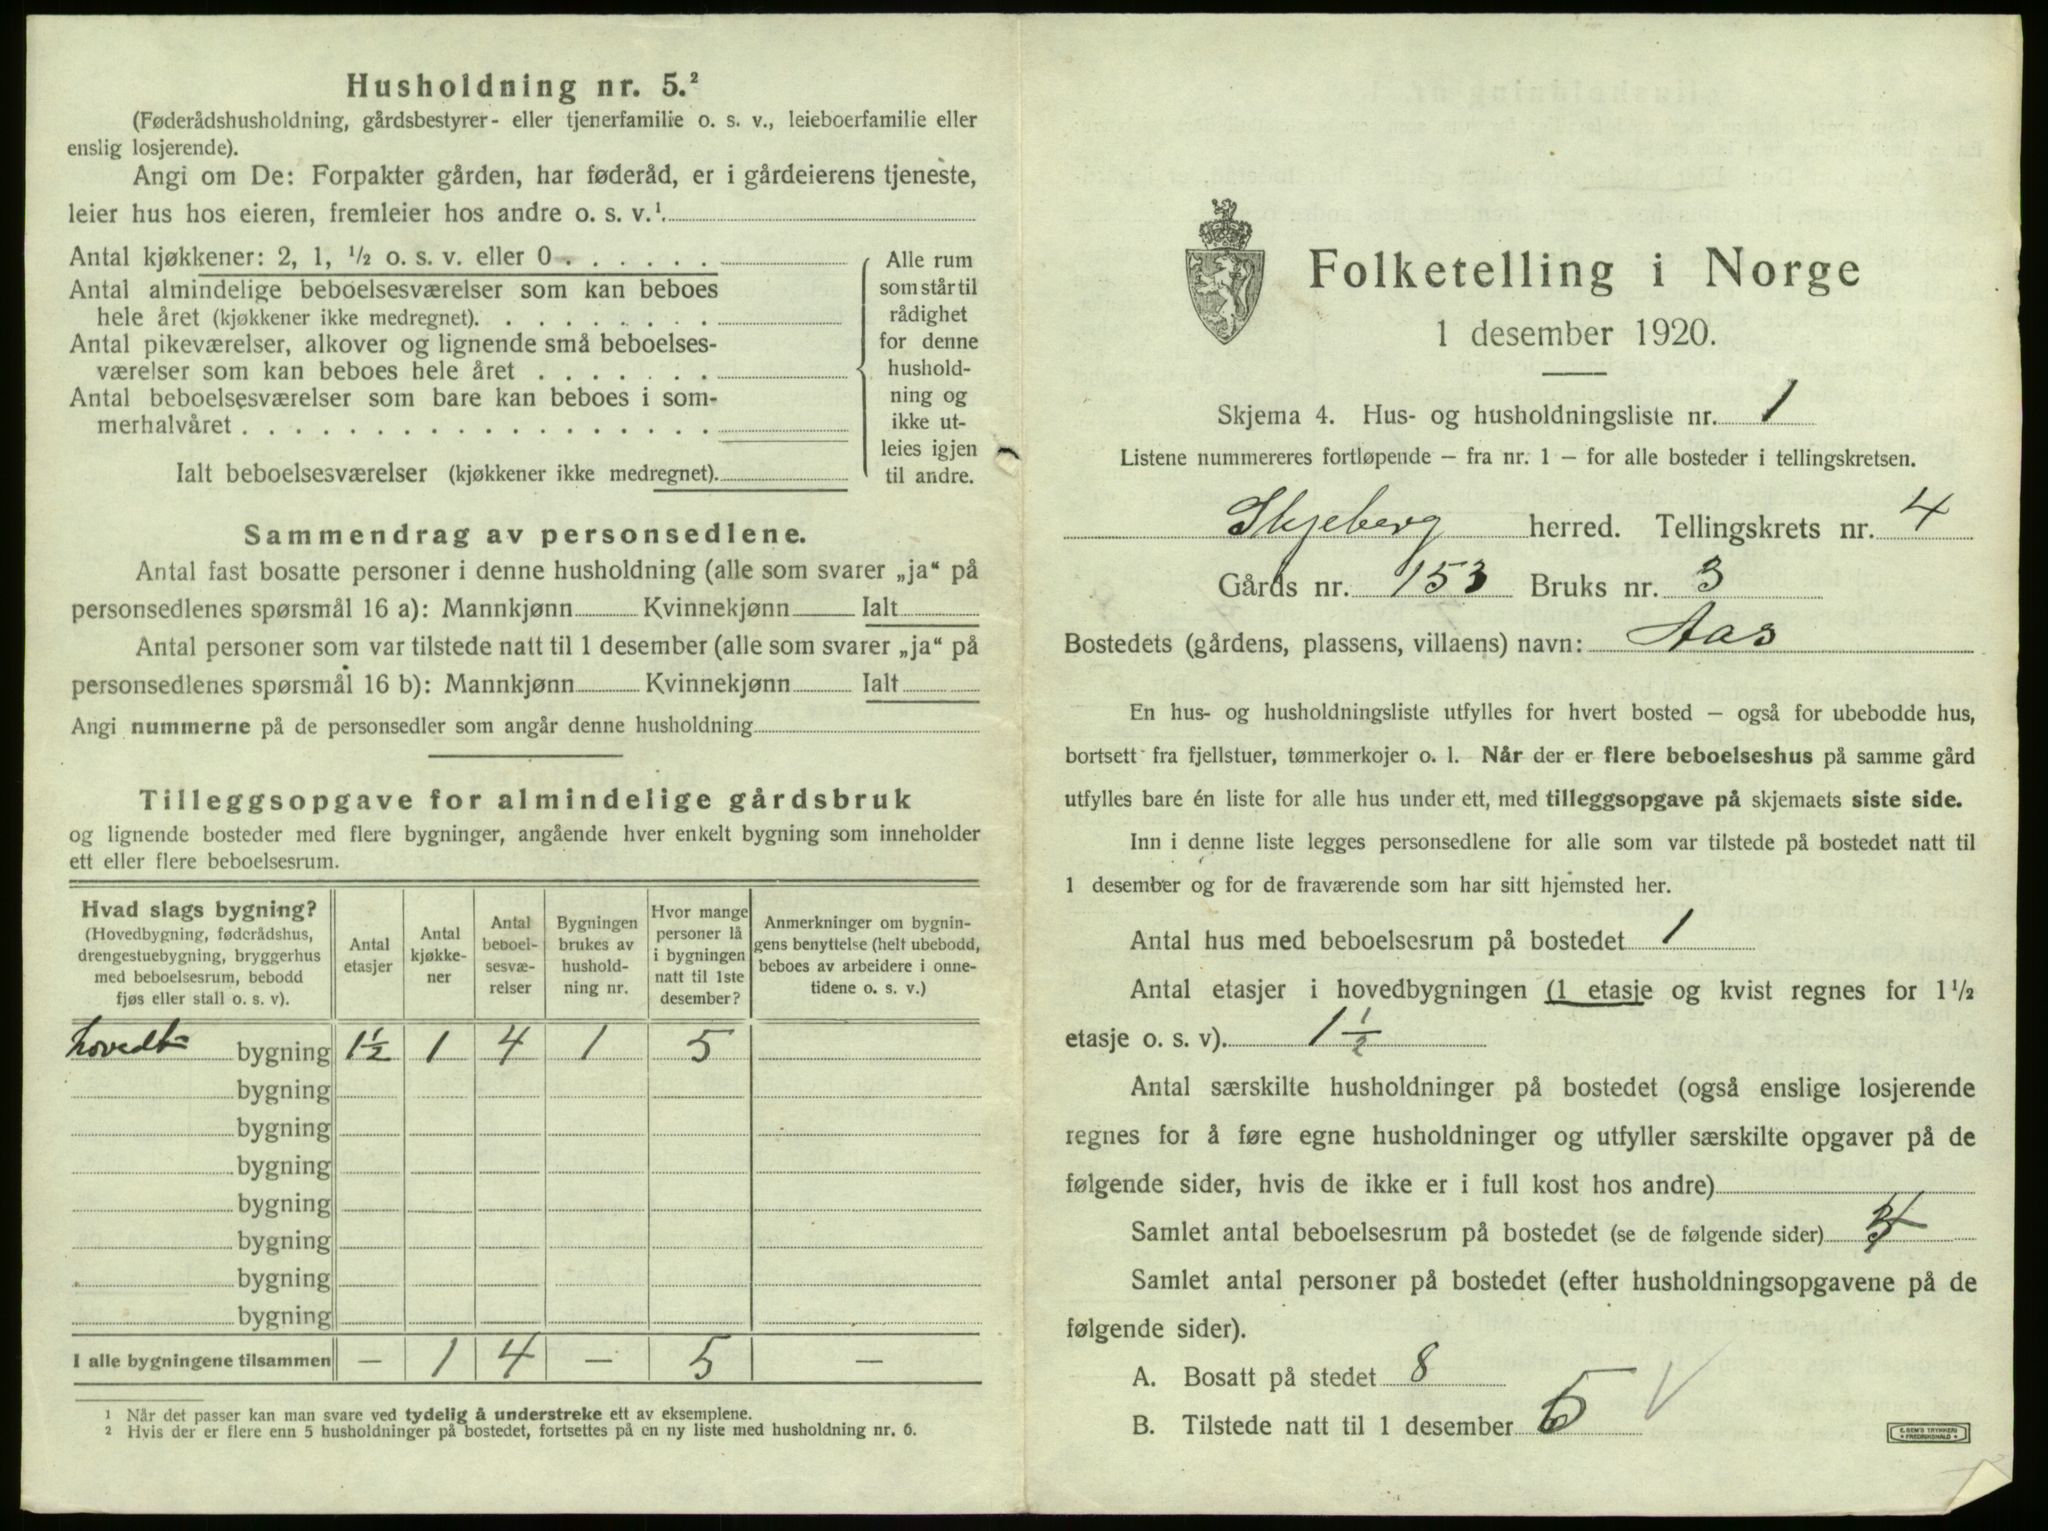 Husholdning nr. 5.²
(Føderådshusholdning, gårdsbestyrer- eller tjenerfamilie o. s. v., leieboerfamilie eller
enslig losjerende).
Angi om De: Forpakter gården, har føderåd, er i gårdeierens tjeneste,
leier hus hos eieren, fremleier hos andre o. s. v.¹
Antal kjøkkener: 2, 1, ½ o. s. v. eller 0
Antal almindelige beboelsesværelser som kan beboes
hele året (kjøkkener ikke medregnet)
Antal pikeværelser, alkover og lignende små beboelses-
værelser som kan beboes hele året
Antal beboelsesværelser som bare kan beboes i som-
merhalvåret
Ialt beboelsesværelser (kjøkkener ikke medregnet)
Alle rum
som står til
rådighet
for denne
hushold-
ning og
ikke ut-
leies igjen
til andre.
Sammendrag av personsedlene.
Antal fast bosatte personer i denne husholdning (alle som svarer „ja“ på
personsedlenes spørsmål 16 a): Mannkjønn Kvinnekjønn Ialt
Antal personer som var tilstede natt til 1 desember (alle som svarer „ja“ på
personsedlenes spørsmål 16 b): Mannkjønn Kvinnekjønn Ialt
Angi nummerne på de personsedler som angår denne husholdning
Tilleggsopgave for almindelige gårdsbruk
og lignende bosteder med flere bygninger, angående hver enkelt bygning som inneholder
ett eller flere beboelsesrum.
Hvad slags bygning?
(Hovedbygning, føderådshus,
drengestuebygning, bryggerhus
med beboelsesrum, bebodd
fjøs eller stall o. s. v).
Antal
etasjer
Antal
kjøkke-
ner
Antal
beboel-
sesvæ-
relser
Bygningen
brukes av
hushold-
ning nr.
Hvor mange
personer lå
i bygningen
natt til 1ste
desember?
Anmerkninger om bygnin-
gens benyttelse (helt ubebodd,
beboes av arbeidere i onne-
tidene o. s. v.)
bygning 1½ 1 4 1 5
bygning
bygning
bygning
bygning
bygning
bygning
bygning
I alle bygningene tilsammen — 1 4 — 5 —
¹ Når det passer kan man svare ved tydelig å understreke ett av eksemplene.
² Hvis der er flere enn 5 husholdninger på bostedet, fortsettes på en ny liste med husholdning nr. 6.
Folketelling i Norge
1 desember 1920.
Skjema 4. Hus- og husholdningsliste nr. 1
Listene nummereres fortløpende – fra nr. 1 – for alle bosteder i tellingskretsen.
Skjeberg herred. Tellingskrets nr. 4
Gårds nr. 153 Bruks nr. 3
Bostedets (gårdens, plassens, villaens) navn: Aas
En hus- og husholdningsliste utfylles for hvert bosted – også for ubebodde hus,
bortsett fra fjellstuer, tømmerkojer o. l. Når der er flere beboelseshus på samme gård
utfylles bare én liste for alle hus under ett, med tilleggsopgave på skjemaets siste side.
Inn i denne liste legges personsedlene for alle som var tilstede på bostedet natt til
1 desember og for de fraværende som har sitt hjemsted her.
Antal hus med beboelsesrum på bostedet 1
Antal etasjer i hovedbygningen (1 etasje og kvist regnes for 1½
etasje o. s. v). 1½
Antal særskilte husholdninger på bostedet (også enslige losjerende
regnes for å føre egne husholdninger og utfyller særskilte opgaver på de
følgende sider, hvis de ikke er i full kost hos andre)
Samlet antal beboelsesrum på bostedet (se de følgende sider)
Samlet antal personer på bostedet (efter husholdningsopgavene på de
følgende sider).
A. Bosatt på stedet 8
B. Tilstede natt til 1 desember
E. SEM'S TRYKKERI
FREDRIKSHALD